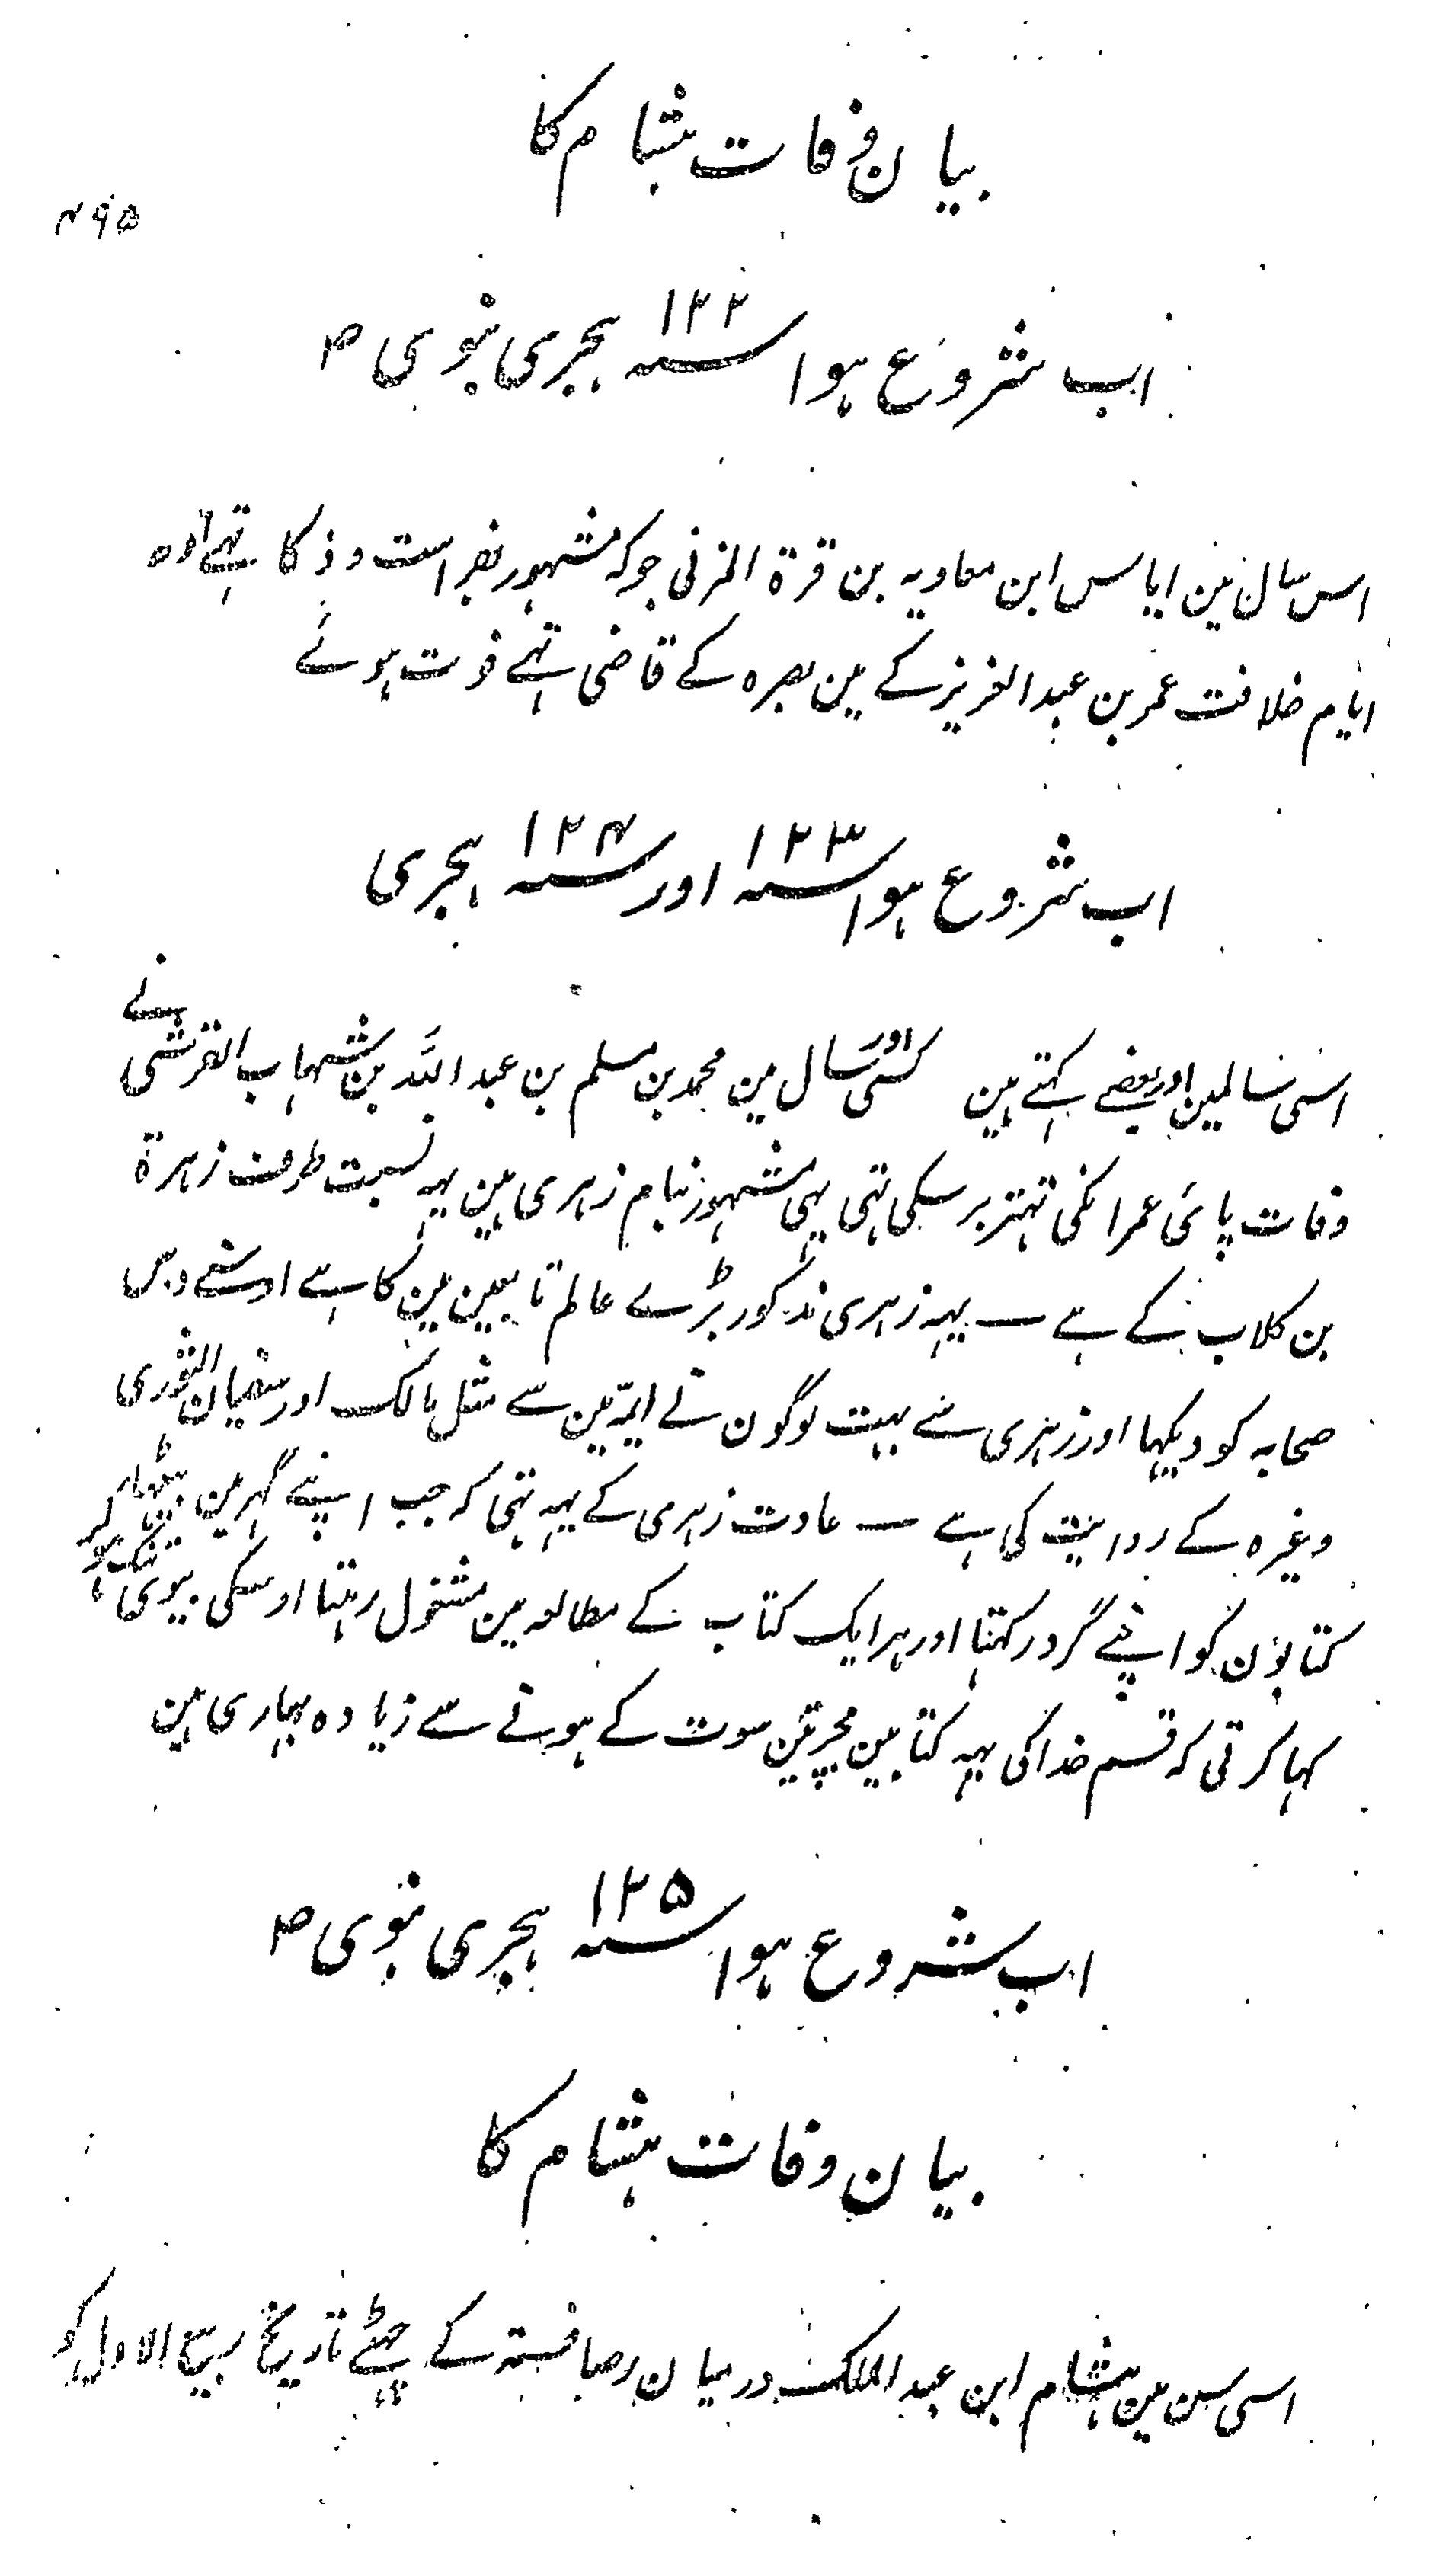 بیان وفات ہشام کا
۴۹۵
اب شروع ہوا سنہ ۱۲۲ ہجری نبوی ص
اس سال مین ایاس ابن معاویہ بن قرۃ المزنی جو کہ مشہور بفراست و ذکا تہے اور وہ
ایام خلافت عمر بن عبد العزیز کے مین بصرہ کے قاضی تہے فوت ہوئے
اب شروع ہوا سنہ ۱۲۳ اور سنہ ۱۲۴ ہجری
اسی سالمین اور بعضے کہتے ہین کسی اور سال مین محمد بن مسلم بن عبد اللہ بن شہاب القرشی نے
وفات پائی عمر انکی تہتر برسکی تہی یہی مشہور بنام زہری ہین یہہ نسبت طرف زہرۃ
بن کلاب کے ہے ـــ یہہ زہری مذکور بڑے عالم تابعین مین کا ہے اوسنے دس
صحابہ کو دیکہا اور زہری سے بہت لوگون نے ایمہ مین سے مثل مالک اور سفیان الثوری
وغیرہ کے روایت کی ہے ـــ عادت زہری کے یہہ تہی کہ جب اپنے گہر مین بیٹہتا
کتابون کو اپنے گرد رکہتا اور ہر ایک کتاب کے مطالعہ مین مشغول رہتا اوسکی بیوی تنگ ہو کر
کہا کرتی کہ قسم خدا کی یہہ کتابین مجہپر تین سوت کے ہونے سے زیادہ بہاری ہین
اب شروع ہوا سنہ ۱۲۵ ہجری نبوی ص
بیان وفات ہشام کا
اسی سن مین ہشام ابن عبد الملک درمیان رصافتہ کے چہٹے تاریخ ربیع الاول کو